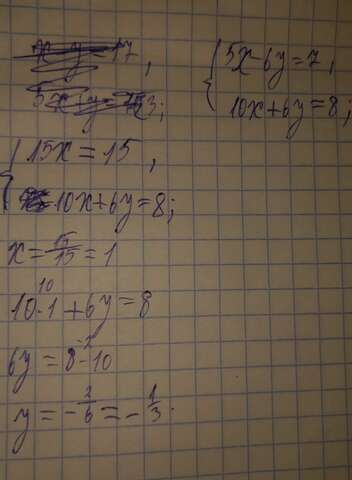 { 5x-6y=7,
10x+6y=8;
{ 15x=15,
10x+6y=8;
x=15/15=1
10·1+6y=8
10
6y=8-10
-2
y=-2/6=-1/3.